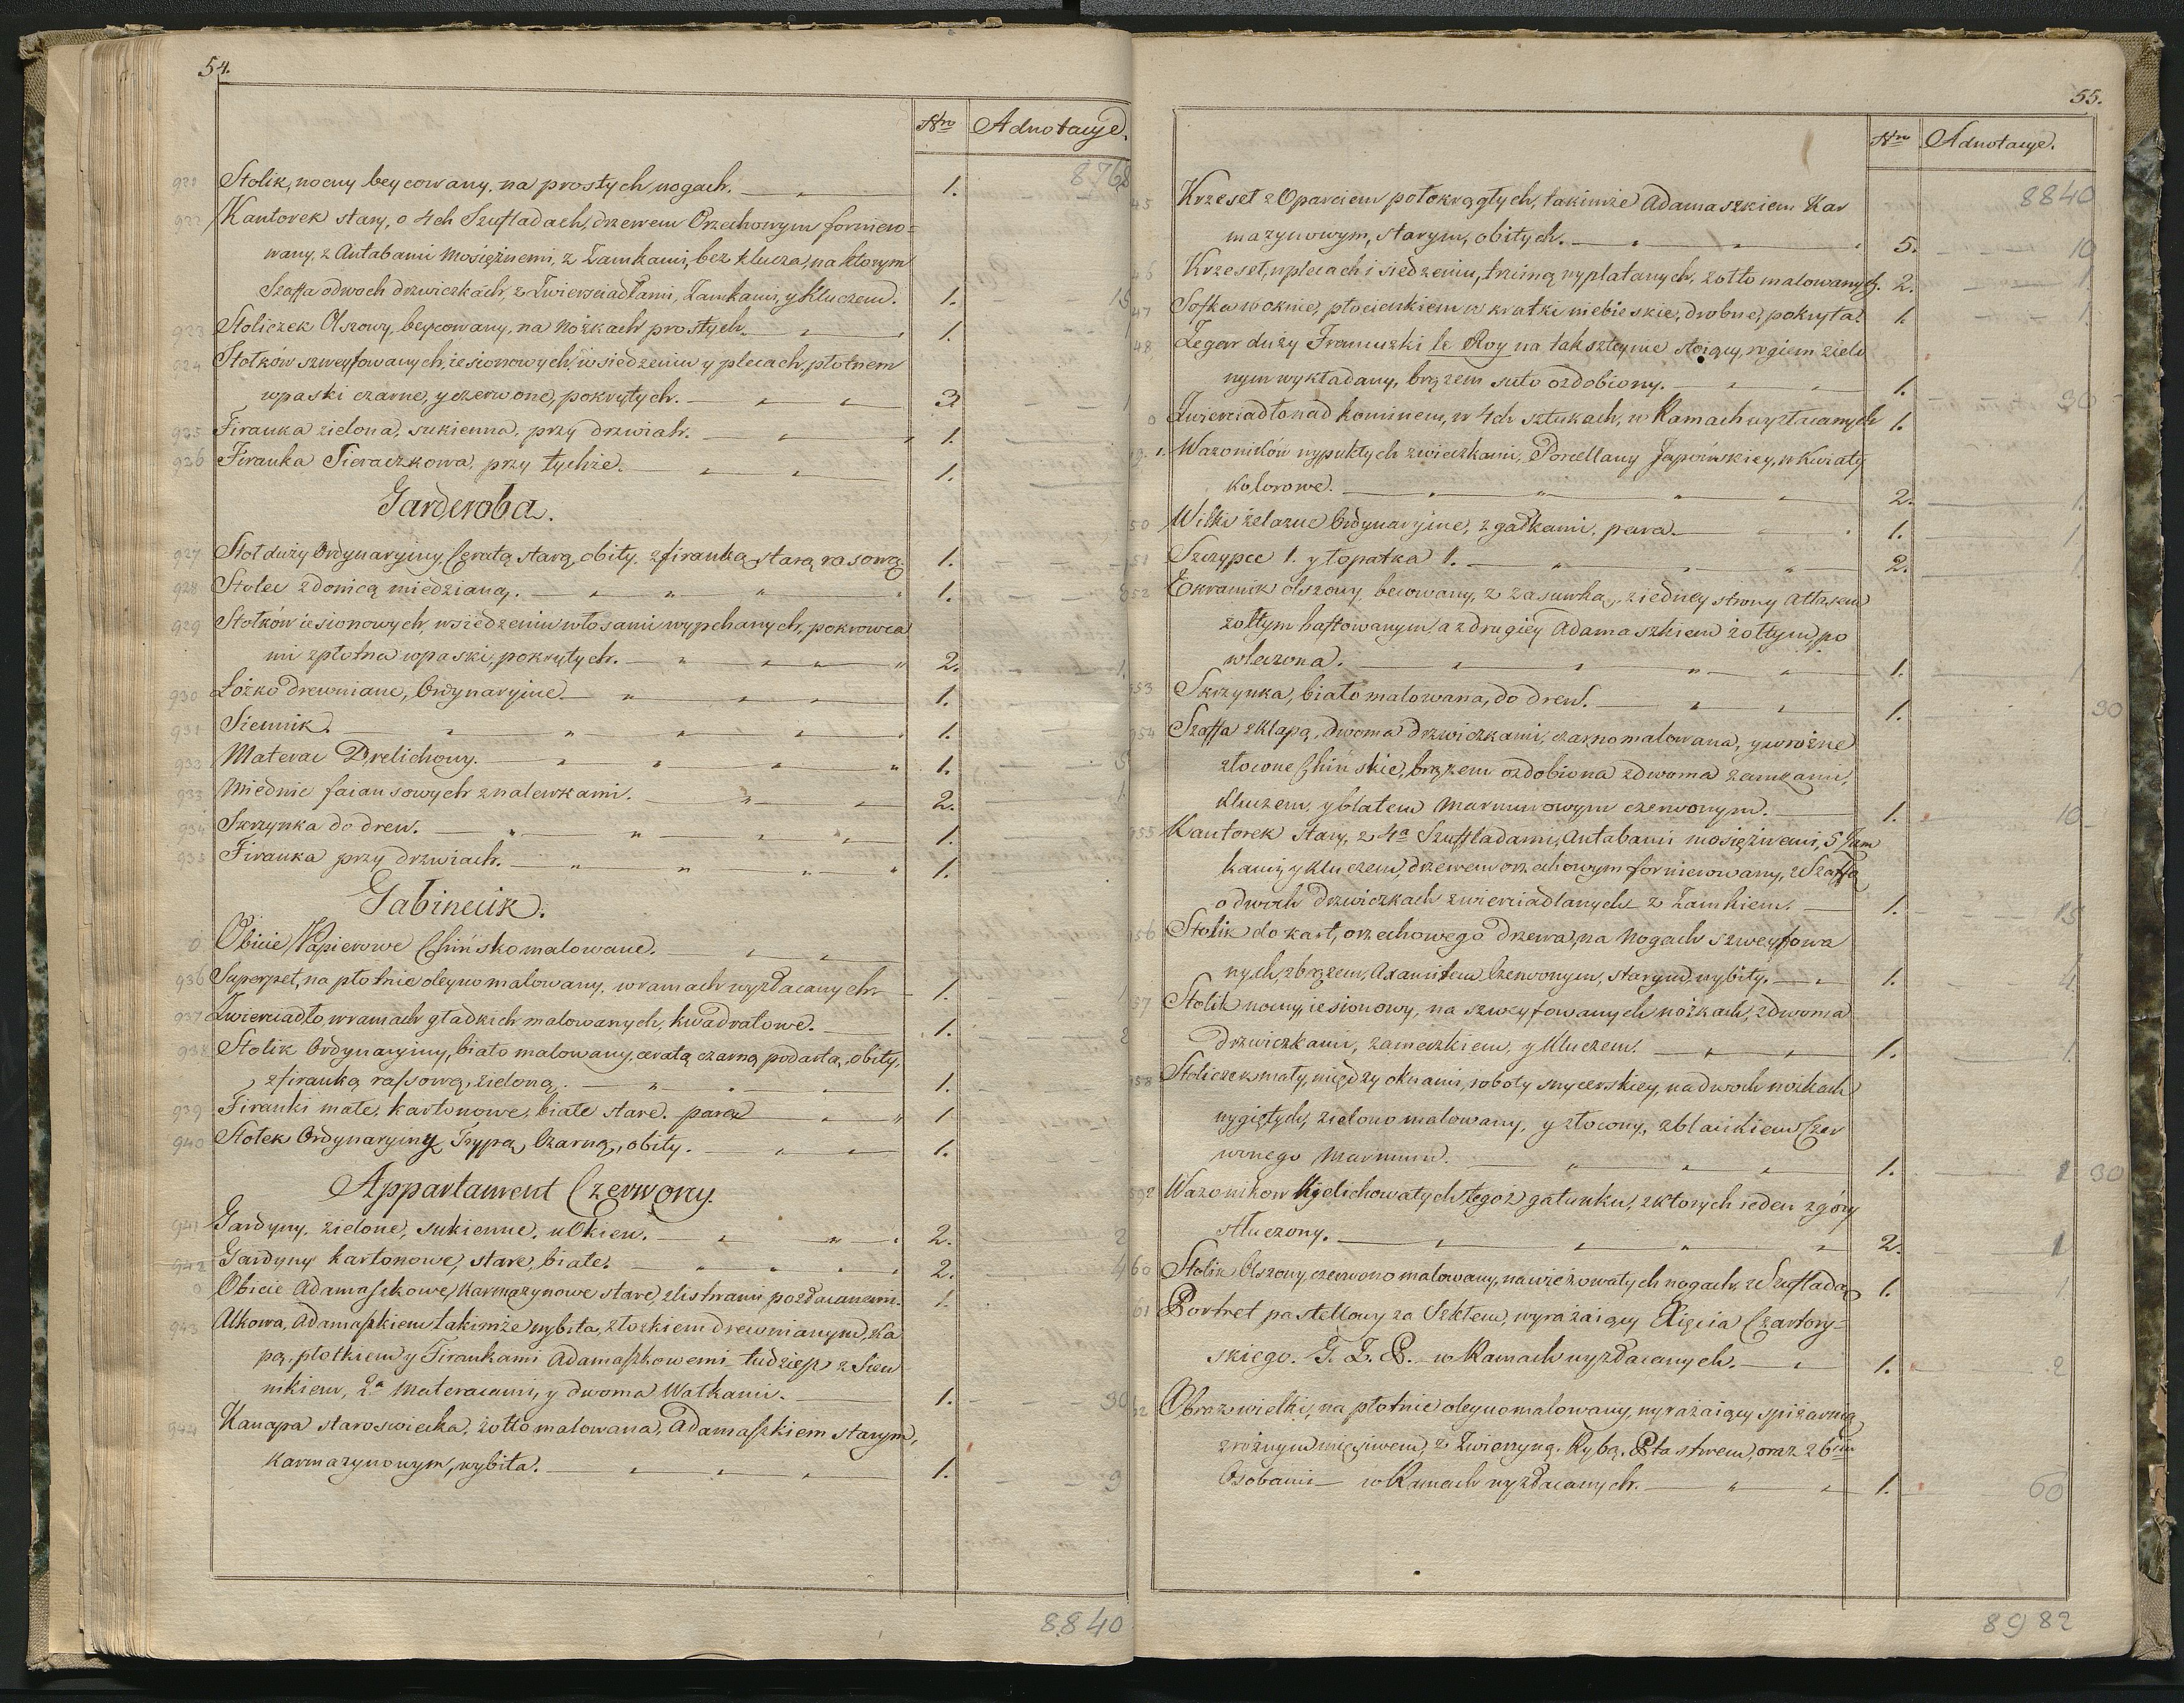 54.
Nro Adnotacye.
8768
921 Stolik, nocny beycowany, na prostych nogach. 1.
922 Kantorek stary, o 4ch Szufladach, drzewem Orzechowym fornero=
wany, z Antabami Mosiężnemi, z Zamkami, bez klucza, na ktorym
Szaffa odwoch drzwiczkach, z Zwierciadłami, Zamkami, y Kluczem. 1. 15
923 Stoliczek Olszowy, beycowany, na Nóżkach prostych. 1. 1
924 Stołków szweyfowanych, iesionowych, w siedzeniu y plecach, płotnem
wpaski czarne, y czerwone, pokrytych. 3 1
925 Firanka zielona, sukienna, przy drzwiach. 1.
926 Firanka Tieraczkowa, przy tychże. 1.
Garderoba.
927 Stoł duży Ordynaryiny, Ceratą starą, obity, z firanką starą rasową. 1.
928 Stolec z donicą miedzianą. 1. 8
929 Stołków iesionowych, w siedzeniu włosami wypchanych, pokrowca
mi z płotna wpaski, pokrytych. 2. 1.
930 Łożko drewniane, Ordynaryine. 1.
931 Siennik. 1.
932 Materac Drelichowy. 1. 5
933 Miednic faiansowych z nalewkami. 2. 1
934 Skrzynka do drew. 1.
935 Firanka przy drzwiach. 1.
Gabineik.
0 Obicie Papierowe Chińsko malowane.
936 Superpet, na płotnie oleyno malowany, w ramach wyzłacanych 1. 1
937 Zwierciadło, w ramach gładkich malowanych, kwadratowe. 1. 2
938 Stolik Ordynaryiny, biało malowany, ceratą czarną podartą, obity,
z firanką rassową, zieloną. 1.
939 Firanki małe, kartonowe, białe stare. para 1
940 Stołek Ordynaryiny Trypą Czarną, obity. 1.
Appartament Czerwony.
941 Gardyny, zielone, sukienne, u Okien. 2. 2
942 Gardyny kartonowe, stare, białe. 2. 4
0 Obicie Adamaszkowe, Karmazynowe stare, z listwami pozłacanemi. 1.
943 Alkowa, Adamaszkiem takimże wybita, z łożkiem drewnianym, Ka
pą, płotkiem y Firankami Adamaszkowemi, tudzież z Sien
nikiem, 2a Materacami, y dwoma Wałkami. 1. 30
944 Kanapa staroswiecka, żołto malowana, Adamaszkiem starym,
Karmazynowym, wybita. 1. 9
8840
55.
Nro Adnotacye.
8840
45 Krzeseł z Oparciem połokrągłych, takimże Adamaszkiem Kar
mazynowym, starym, obitych. 5. 10
46 Krzeseł, w plecach i siedzeniu, trzciną wyplatanych, żołto malowanych. 2. 1
47 Sofka w oknie, płocienkiem w kratki niebieskie, drobne, pokryta. 1. 1
48 Zegar duży Francuzki le Roy na taksztynie stoiący, rogiem zielo
nym wykładany, brązem suto ozdobiony. 1. 30
0 Zwierciadło nad kominem, w 4ch sztukach, w Ramach wyzłacanych 1.
Wazoników wypukłych z wieczkami, Porcellany Japońskiey, w Kwiaty
kolorowe. 2. 1.
50 Wilki żelazne Ordynaryine, z gałkami, para. 1. 1
51 Szczypce 1. y łopatka 1. 2. 1.
952 Ekranik olszowy becowany, z zasuwką, z iedney strony Atłasem
żołtym haftowanym, a z drugiey Adamaszkiem żołtym, po
wleczona. 1. 1
953 Skrzynka, biało malowana, do drew. 1. 30
954 Szaffa z klapą, dwoma drzwiczkami, czarno malowana, y w różne
złocone Chińskie, brązem ozdobiona z dwoma zamkami,
kluczem, y blatem Marmurowym czerwonym. 1. 10
955 Kantorek stary, z 4a Szufladami, Antabami mosiężnemi, 5 Zam
kami, y kluczem, drzewem orzechowym fornierowany, z Szaffą
o dwoch drzwiczkach zwierciadlanych z Zamkiem. 1. 15
956 Stolik do kart, orzechowego drzewa, na Nogach szweyfowa
nych, z brązem, Axamitem Czerwonym, starym, wybity. 1. 4
57 Stolik nocny, iesionowy, na szweyfowanych nóżkach, z dwoma
drzwiczkami, zameczkiem, y kluczem. 1. 1.
958 Stoliczek mały, między oknami, roboty snycerskiey, na dwoch nóżkach
wygiętych, zielono malowany, y złocony, z blacikiem Czer
wonego Marmuru. 1. 1 30
Wazoników Kielichowatych tegoż gatunku, z ktorych ieden z góry
stłuczony. 2. 1
60 Stolik Olszowy, czerwono malowany, na wieżowatych nogach, z Szufladą 1. 1
61 Portret pastellowy za Szkłem, wyrażaiący Xięcia Czartory=
skiego. G. Z. P. w Ramach wyzłacanych. 1. 2
62 Obraz wielki, na płotnie oleyno malowany, wyrażaiący spiżarnią
z różnym mięsiwem, z Zwierzyną, Rybą, Ptastwem, oraz z 6ciu
Osobami w Ramach wyzłacanych. 1. 60
8982